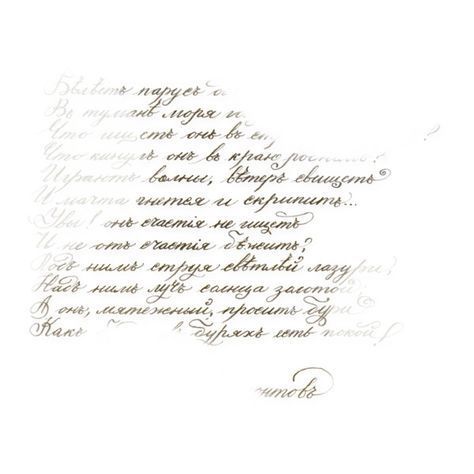 Бѣлѣетъ парусъ
Въ туманѣ моря
Что ищетъ онъ въ
Что кинулъ онъ въ краю
Играютъ волны, вѣтеръ свищетъ
И мачта гнется и скрипитъ...
Увы! онъ счастія не ищетъ
И не отъ счастія бѣжитъ?
Подъ нимъ струя свѣтлѣй лазури
Надъ нимъ лучъ солнца золотой
А онъ, мятежный, проситъ бури
Какъ буряхъ есть покой!